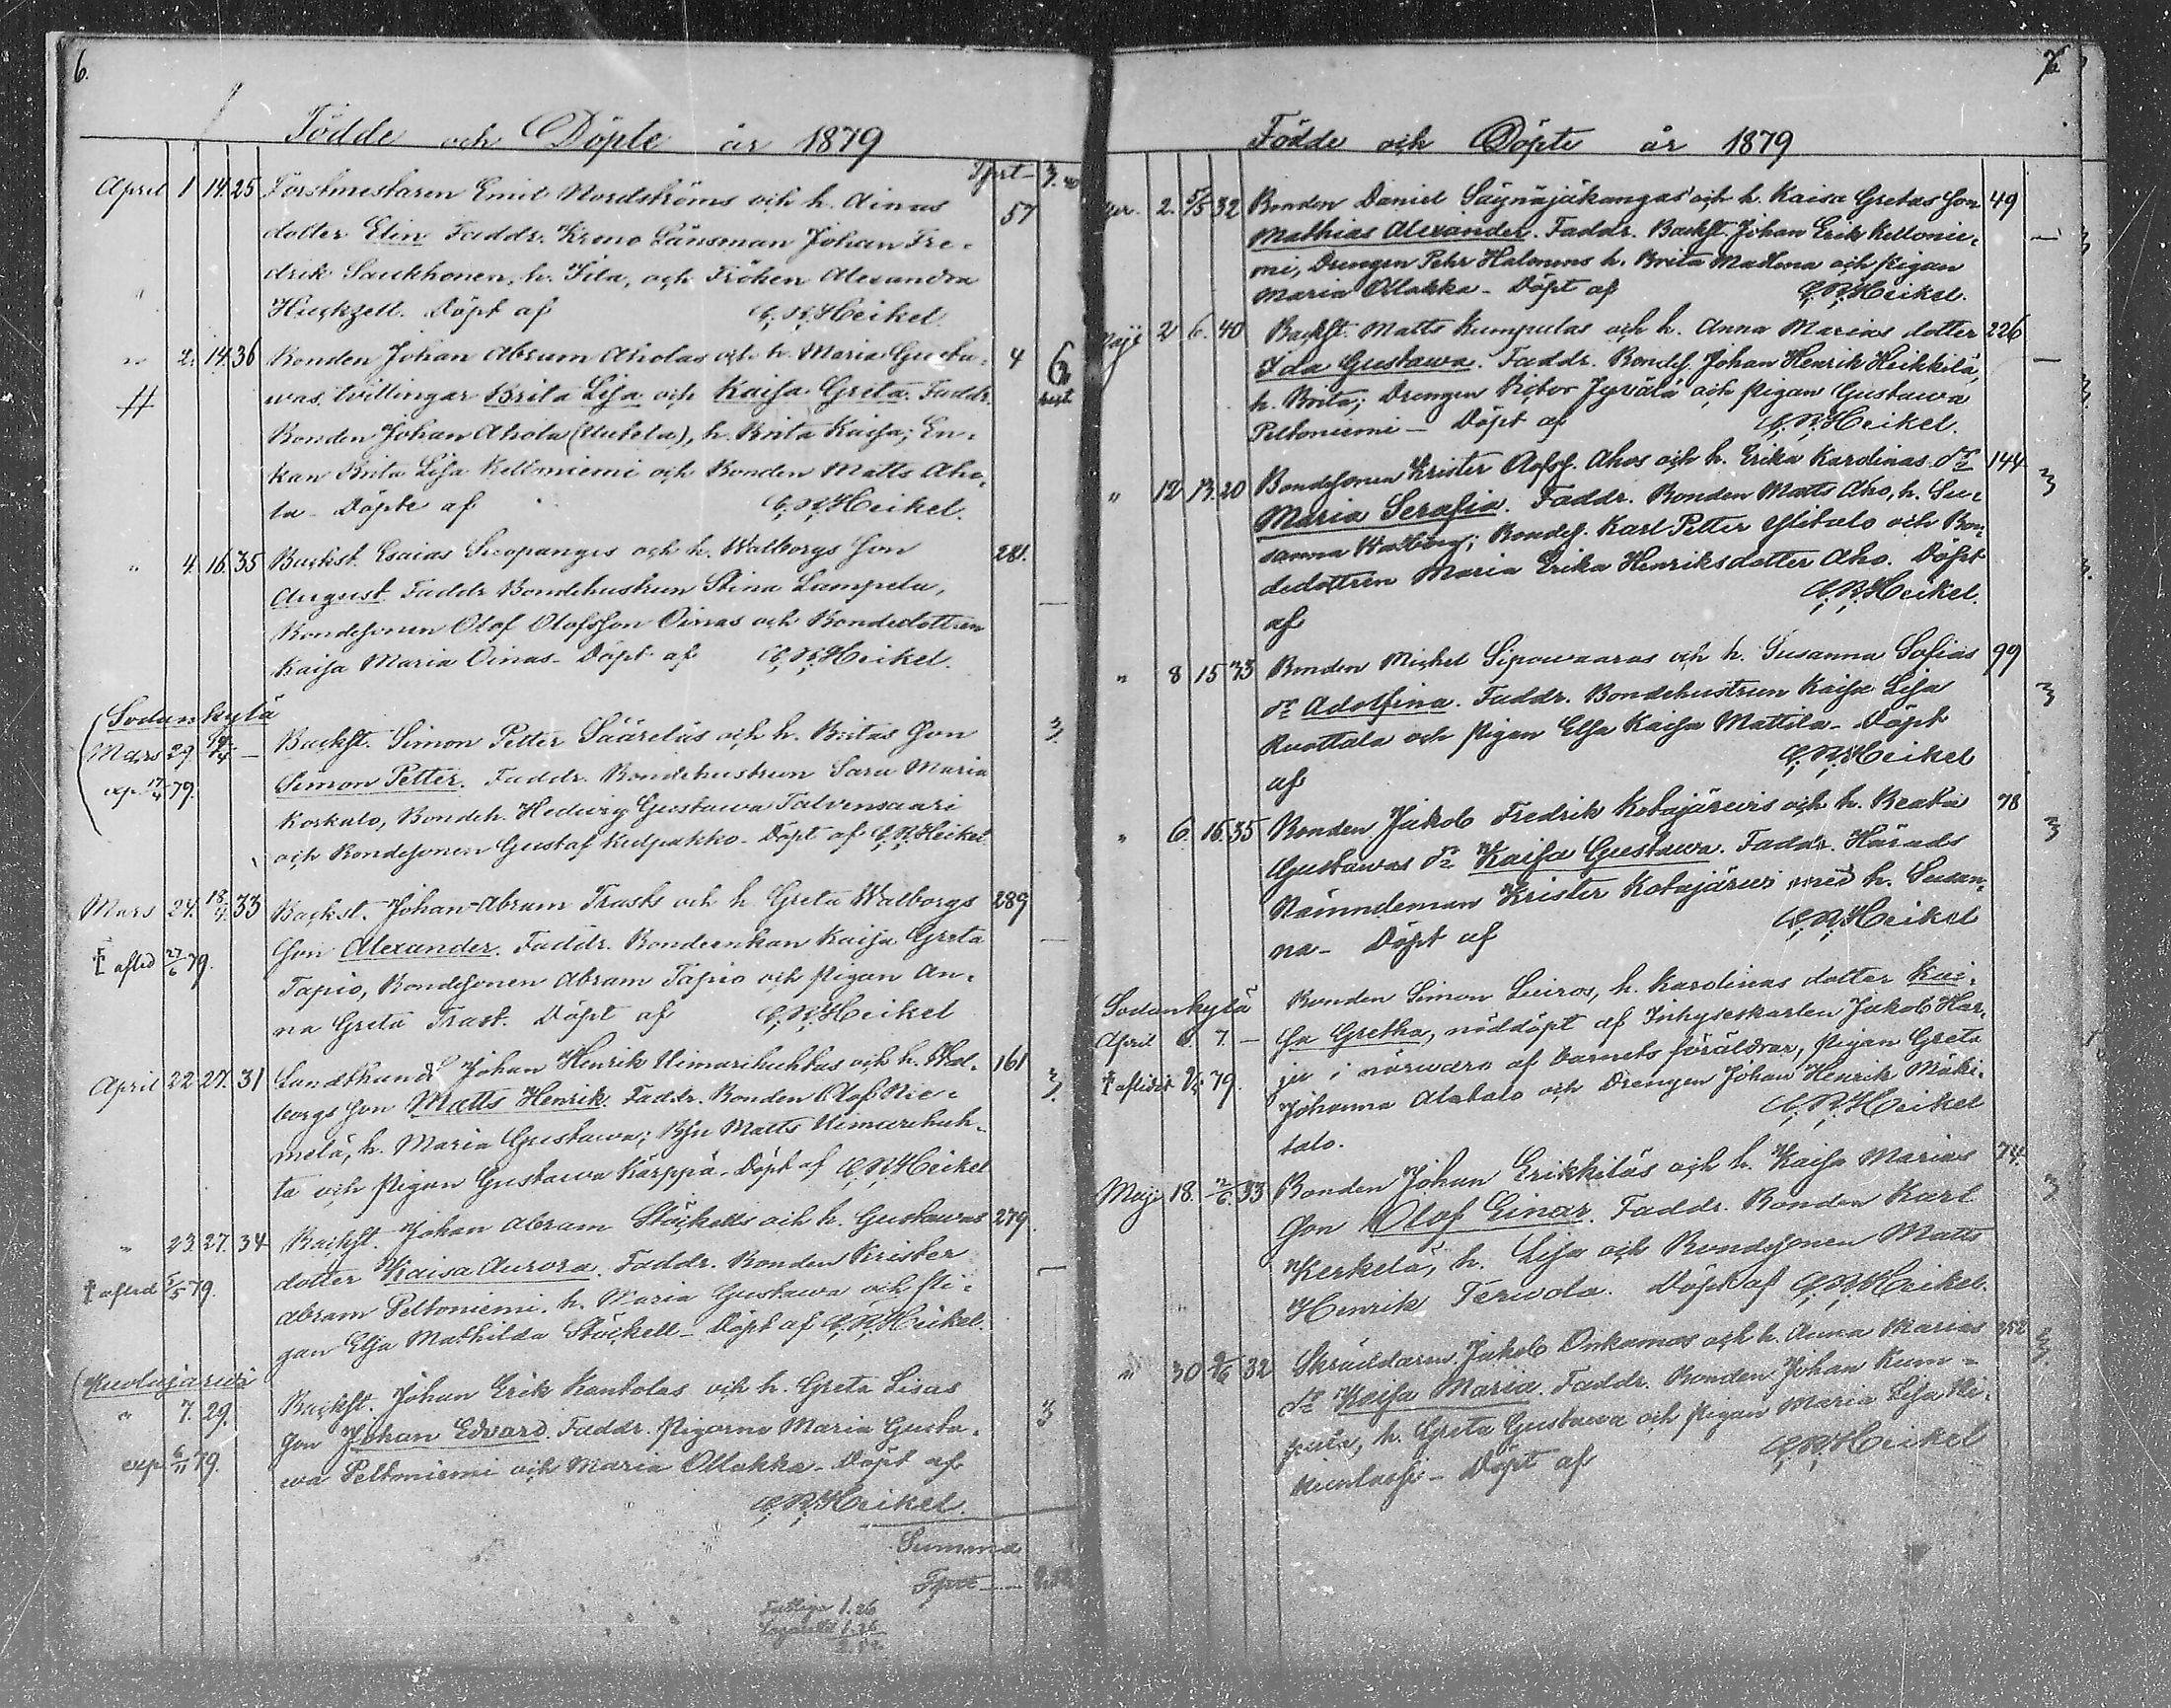 6.
Födde och Döpte år 1879
Tprt 3.
April 1 14. 25 Forstmestaren Emil Nordströms och h. Ainas 57
dotter Elin. Faddr. Krono Länsman Johan Fre-
drik Saukhonen, h. Fila, och Fröken Alexandra
Huckzell. Döpt af C. R. Heikel.
" 2. 14. 36 Bonden Johan Abram Aholas och h. Maria Gusta- 4 6
was tvillingar Brita Lisa och Kaisa Greta. Faddr.
Bonden Johan Ahola (Uutela), h. Brita Kaisa; En-
kan Brita Lisa Keltoniemi och Bonden Matts Aho-
la – Döpte af C. R. Heikel.
" 4. 16. 35 Backst. Esaias Sieopanges och h. Walborgs Son 281.
August. Faddr. Bondehustrun Stina Lampela,
Bondesonen Olof Olofsson Oinas och Bondedottren
Kaisa Maria Oinas – Döpt af C. R. Heikel.
(Sodankylä
Mars 29. 14/4 – Backst. Simon Petter Sääreläs och h. Britas Son 3.
exp. 17/4 79. Simon Petter. Faddr. Bondehustrun Sara Maria
Korkalo, Bondeh. Hedwig Gustawa Talvensaari
och Bondesonen Gustaf Kulpakko – Döpt af C. R. Heikel
Mars 24. 18/4 33 Backst. Johan Abram Trasts och h. Greta Walborgs 289
† afled 27/6 79. Son Alexander. Faddr. Bondeenkan Kaisa Greta –
Tapio, Bondesonen Abram Tapio och Pigan An-
na Greta Trast. Döpt af C. R. Heikel
April 22. 27. 31 Landthandl. Johan Henrik Uimarihuhtas och h. Wal- 161 3.
borgs Son Matts Henrik. Faddr. Bonden Olof Nie-
melä, h. Maria Gustawa; Bsn Matts Uimarihuh-
ta och Pigan Gustawa Kärppä – Döpt af C. R. Heikel
" 23. 27. 34 Backst. Johan Abram Stöckells och h. Gustawas 279.
† afled 5/5 79. dotter Kaisa Aurora. Faddr. Bonden Krister –
Abram Peltoniemi, h. Maria Gustawa och Pi-
gan Elsa Mathilda Stöckell – Döpt af C. R. Heikel.
(Kuolajärvi
" 7. 29. Backst. Johan Erik Kanholas och h. Greta Lisas 3
exp. 6/11 79. Son Johan Edvard. Faddr. Pigorna Maria Gusta-
wa Peltoniemi och Maria Ollakka – Döpt af
C. R. Heikel.
Summa
Tprt
Fattige 1.26
1.26
7
Födde och Döpte år 1879
2. 5/5 32 Bonden Daniel Säynäjäkangas och h. Kaisa Gretas Son 49
Mathias Alexander. Faddr. Backst. Johan Erik Keltonie- –
mi, Drengen Pehr Halonens h. Brita Madlena och Pigan
Maria Ollakka – Döpt af C. R. Heikel.
Maji 2 6. 40 Backst. Matts Kumpulas och h. Anna Marias dotter 226
Ida Gustawa. Faddr. Bondes. Johan Henrik Heikkilä, –
h. Brita; Drengen Victor Jyvälä och Pigan Gustawa
Peltoniemi – Döpt af C. R. Heikel.
" 12 13. 20 Bondesonen Krister Olofss. Ahos och h. Erika Karolinas dr 144 3
Maria Serafia. Faddr. Bonden Matts Aho, h. Su-
sanna Walborg; Bondes. Karl Petter Ylitalo och Bon-
dedottren Maria Erika Henriksdotter Aho. Döpt
af C. R. Heikel.
" 8 15 33 Bonden Michel Sipowaaras och h. Susanna Sofias 99
dr Adolfina. Faddr. Bondehustrun Kaisa Lisa 3
Ruottala och Pigan Elsa Kaisa Mattila – Döpt
af C. R. Heikel
" 6. 16. 35 Bonden Jakob Fredrik Kotajärvis och h. Beata 78
Gustawas dr Kaisa Gustawa. Faddr. Härads 3
Nämndeman Krister Kotajärvi med h. Susan-
na – Döpt af C. R. Heikel
Sodankylä Bonden Simon Luiros, h. Karolinas dotter Kai-
April 6. 7. – sa Gretha, nöddöpt af Inhyseskarlen Jakob Har-
† aflidit 79. ju i närwaro af barnets föräldrar, Pigan Greta
Johanna Alatalo och Drengen Johan Henrik Mäki-
talo. C. R. Heikel
Maji 18. 2/6. 33 Bonden Johan Erikkiläs och h. Kaisa Marias 74.
Son Olof Einar. Faddr. Bonden Karl 3
Kerkelä, h. Lisa och Bondesonen Matts
Henrik Terwola. Döpt af C. R. Heikel.
" 30 2/6 32 Skräddaren Jakob Onkamos och h. Anna Marias 252
dr Kaisa Maria. Faddr. Bonden Johan Kum- 3.
pula, h. Greta Gustawa och Pigan Maria Lisa Ni-
– Döpt af C. R. Heikel